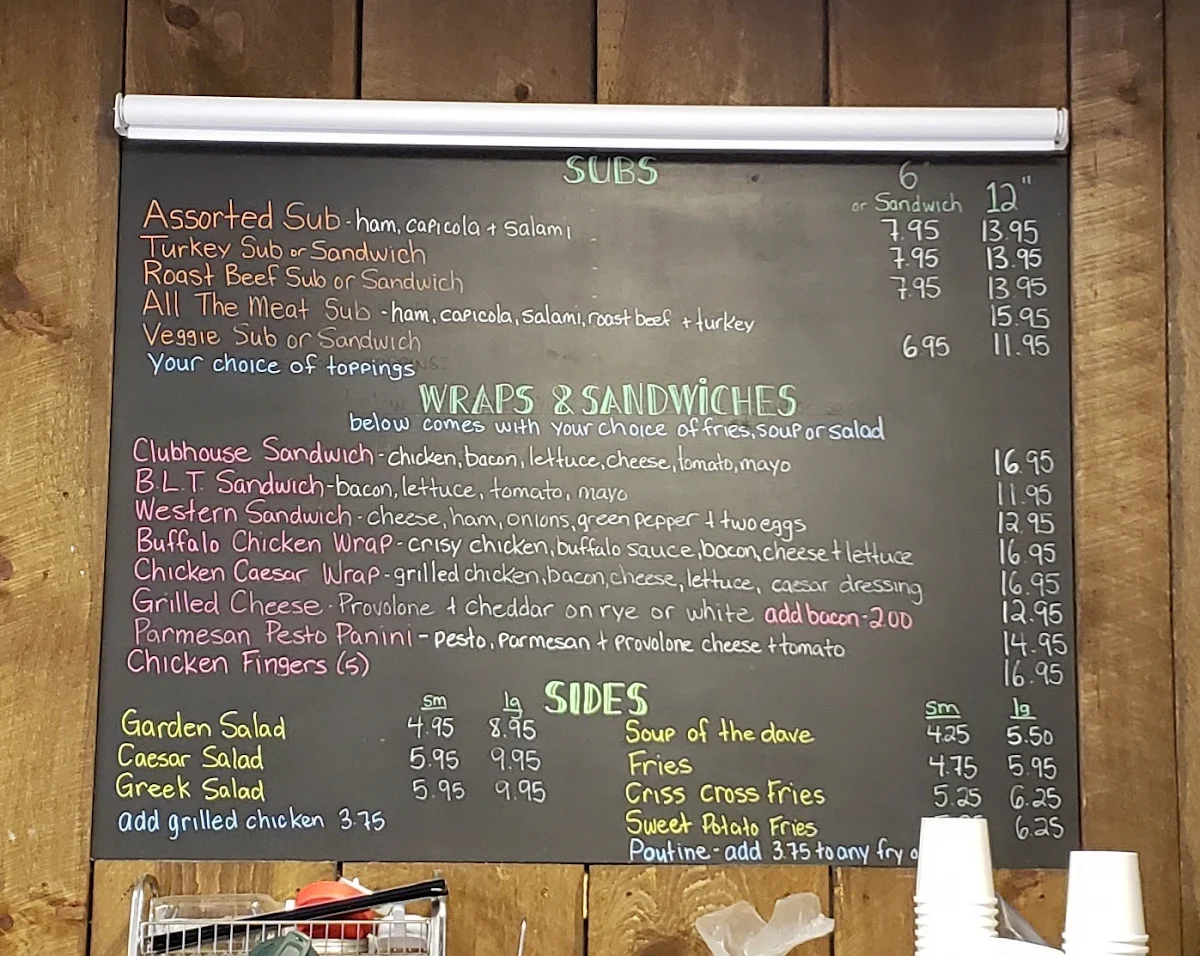 SUBS 6"
or Sandwich 12"
Assorted Sub - ham, capicola + salami 7.95 13.95
Turkey Sub or Sandwich 7.95 13.95
Roast Beef Sub or Sandwich 7.95 13.95
All The Meat Sub - ham, capicola, salami, roast beef + turkey 15.95
Veggie Sub or Sandwich 6.95 11.95
Your choice of toppings
WRAPS & SANDWiCHES
below comes with your choice of fries, soup or salad
Clubhouse Sandwich - chicken, bacon, lettuce, cheese, tomato, mayo 16.95
B.L.T. Sandwich - bacon, lettuce, tomato, mayo 11.95
Western Sandwich - cheese, ham, onions, green pepper + two eggs 12.95
Buffalo Chicken Wrap - crisy chicken, buffalo sauce, bacon, cheese + lettuce 16.95
Chicken Caesar Wrap - grilled chicken, bacon, cheese, lettuce, caesar dressing 16.95
Grilled Cheese - Provolone + cheddar on rye or white add bacon - 2.00 12.95
Parmesan Pesto Panini - pesto, parmesan + provolone cheese + tomato 14.95
Chicken Fingers (5) 16.95
SIDES
sm lg
Garden Salad 4.95 8.95
Caesar Salad 5.95 9.95
Greek Salad 5.95 9.95
add grilled chicken 3.75
sm lg
Soup of the dave 4.25 5.50
Fries 4.75 5.95
Criss Cross Fries 5.25 6.25
Sweet Potato Fries 6.25
Poutine - add 3.75 to any fry